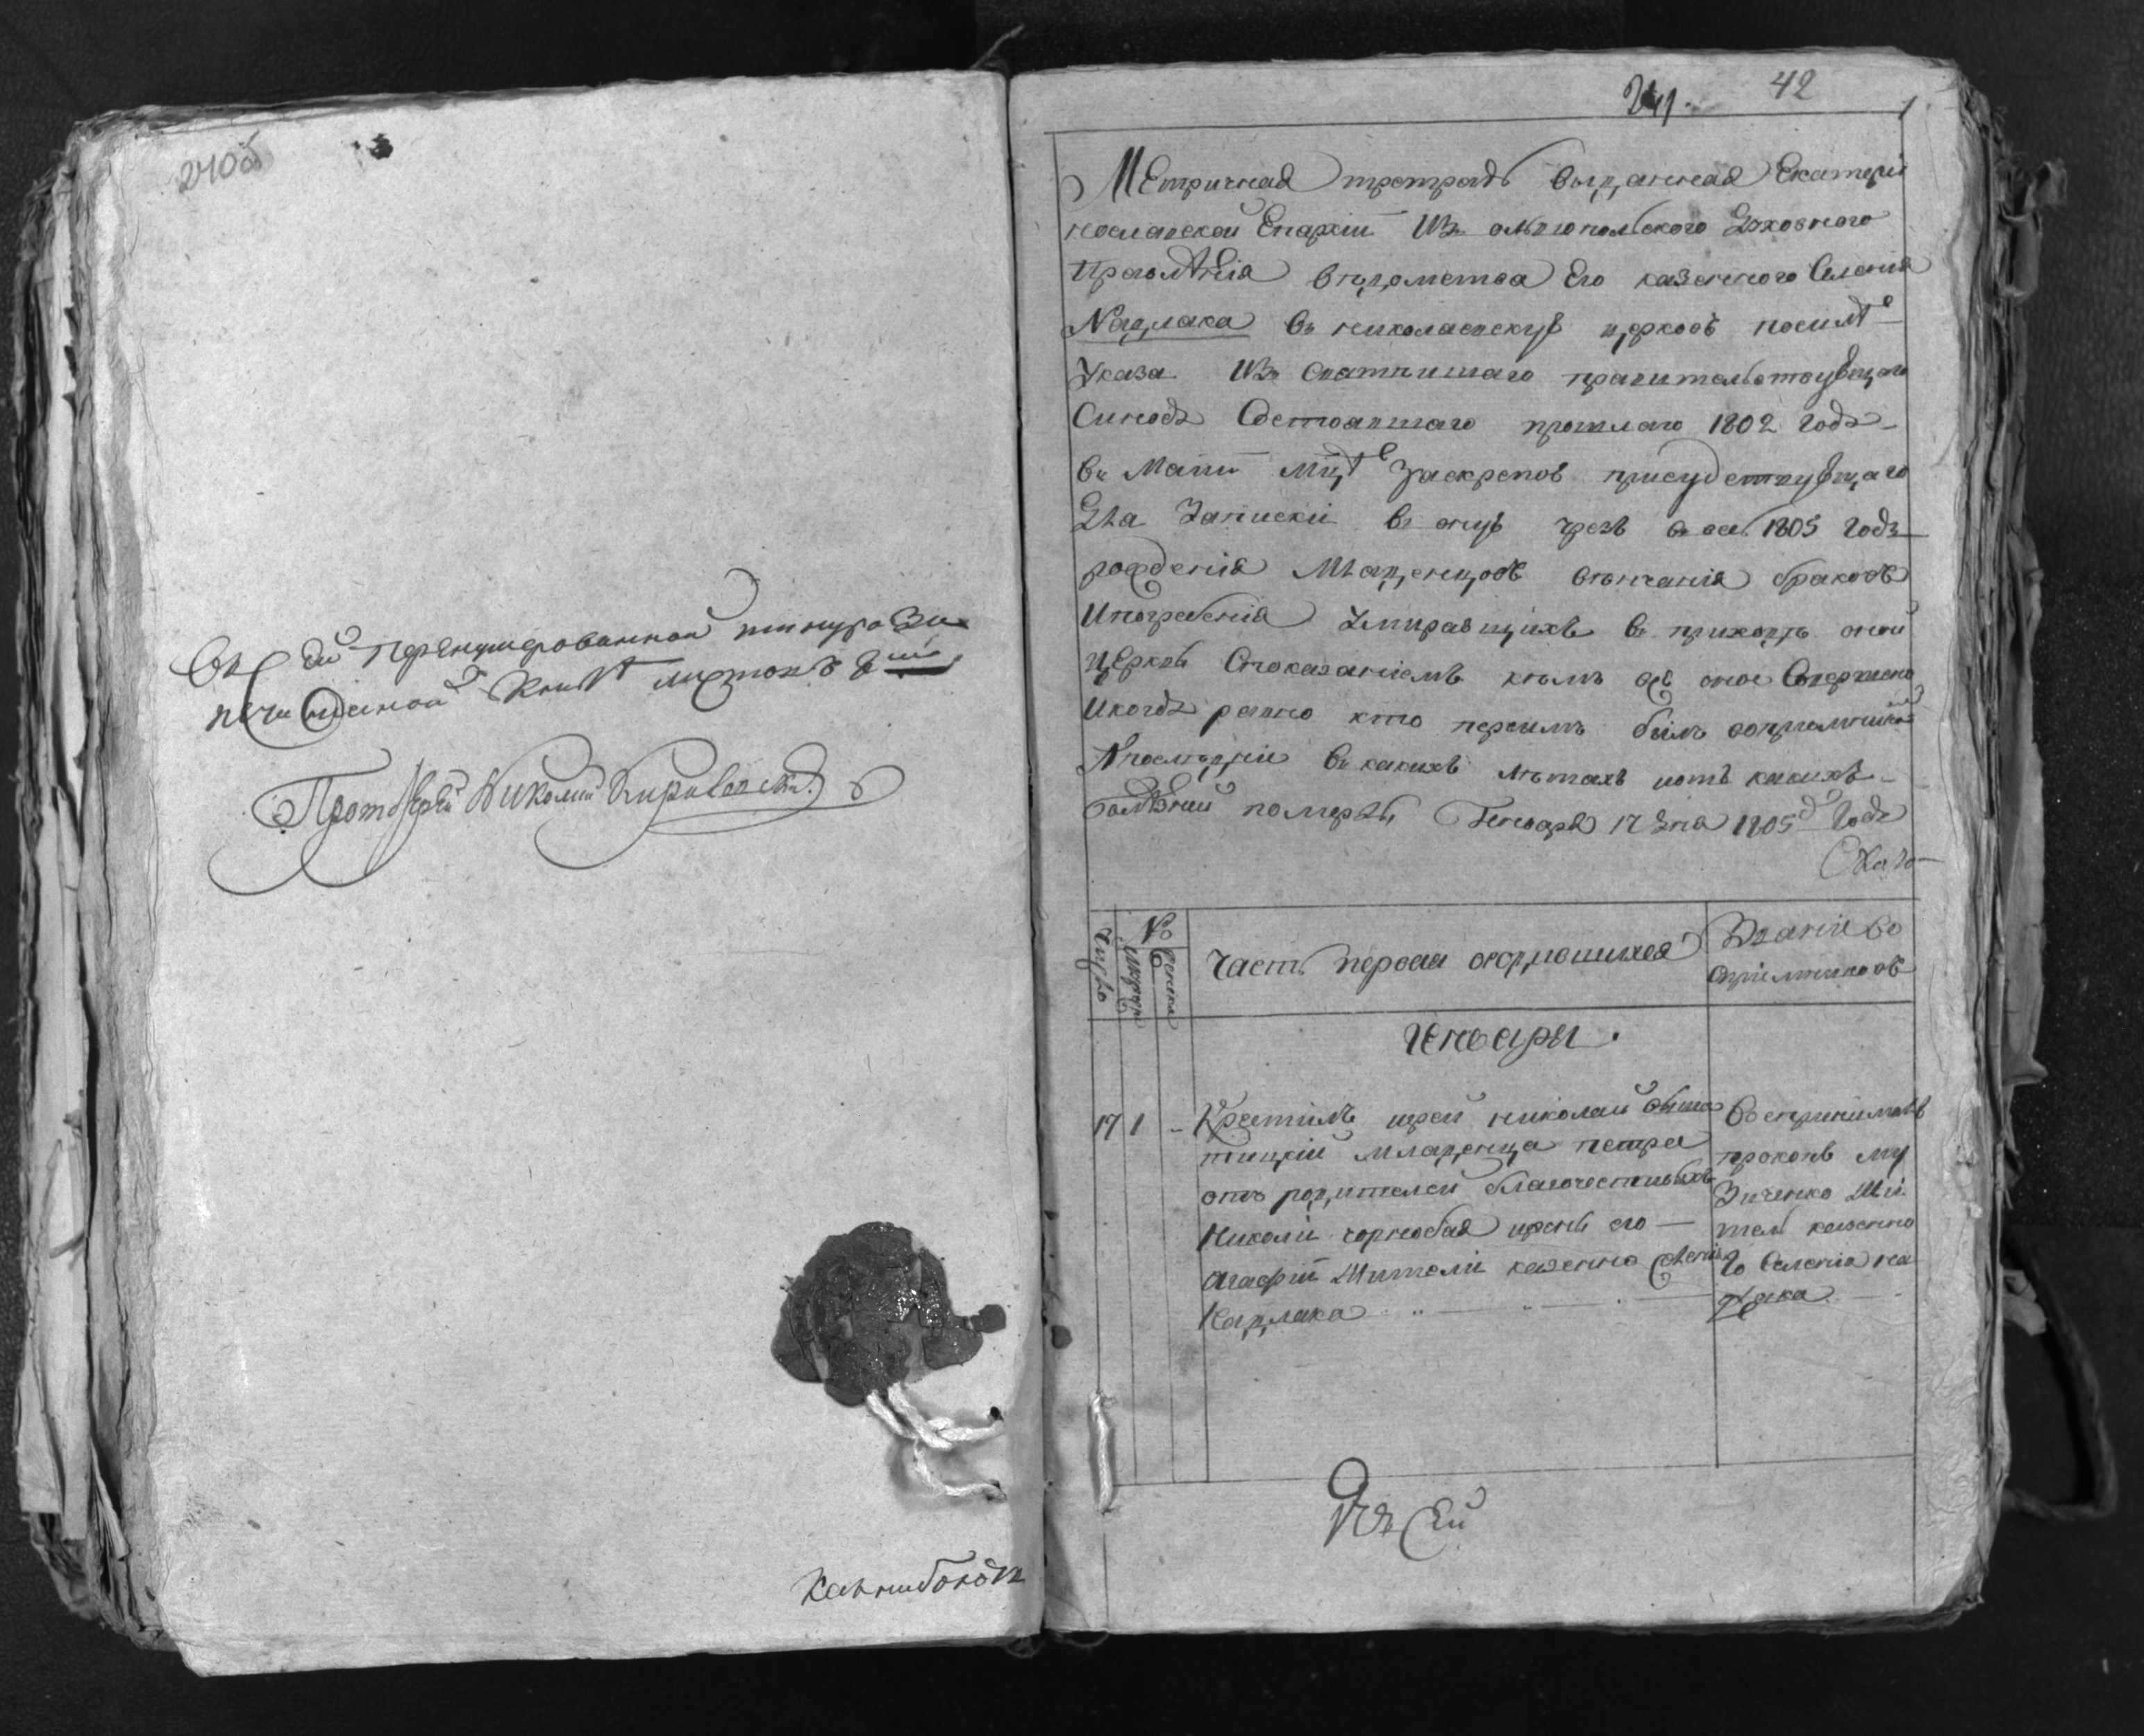 240об
Въ сей перенумерованной шнуроза
печатанной книги листовъ 8мь
Протоіерей Николай Кириевскій
241.
42
1
Метричная тетрадь выданная Екатери
нославской Епархіи изъ ольвіопольского Духовного
Правленія вѣдомства Его казенного Селенія
Надлака въ николаевскую церковь по силѣ
Указа изъ Святѣишаго правительствующаго
Синода Состоявшаго прошлаго 1802 года
въ Маии мцѣ за скрепою присудствующаго
Для Записки въ оную чрезъ весь 1805 годъ
рожденія Младенцовъ вѣнчанія браковъ
И погребенія Умиравщихъ въ приходѣ оной
церкви Споказаніемъ кѣмъ все оное Совершено
И когда равно кто первимъ билъ восприемникомъ
А последніи въ какихъ лѣтахъ и отъ какихъ
болѣзней померли, Генваря 17 дня 1805 Года
Число
№
мужеска
женска
Часть первая о родившихся
Званіе во
сприемниковъ
Генваря.
17 1 - Крестилъ иерей николай
младенца петра
отъ родителей благочестивыхъ
Николи чорнобая и жени его —
агафіи Жители казенно Селенія
Надлака
Воспринималъ
прокопъ му
зиченко жи
тель казенно
го Селенія на
длака
Къ Сей